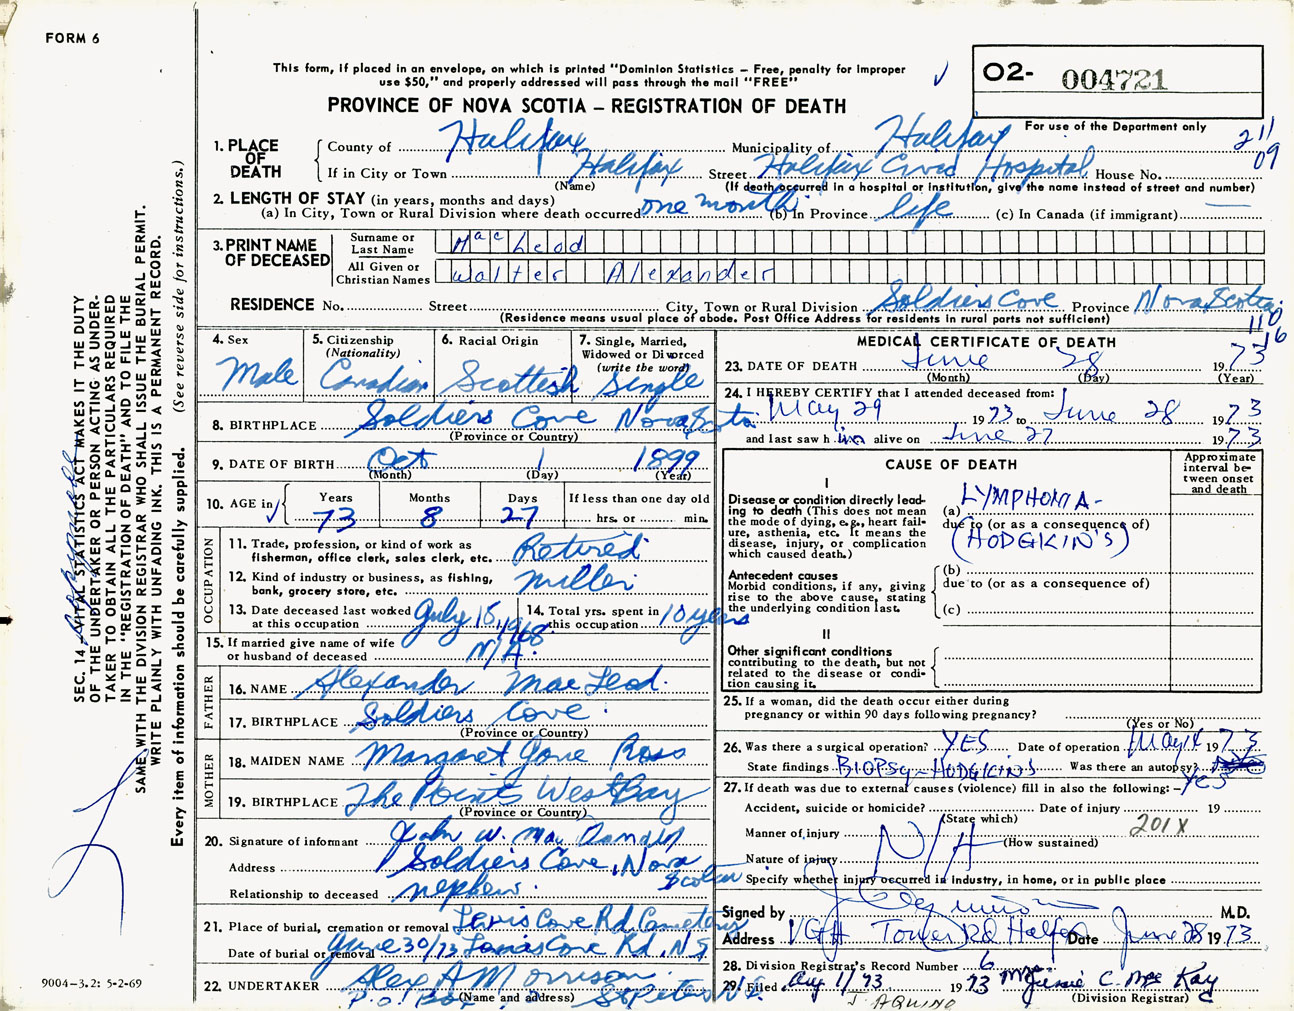 FORM 6
This form, if placed in an envelope, on which is printed "Dominion Statistics – Free, penalty for improper
use $50," and properly addressed will pass through the mail "FREE"
PROVINCE OF NOVA SCOTIA – REGISTRATION OF DEATH
O2- 004721
For use of the Department only
211
09
1. PLACE OF DEATH
County of Halifax Municipality of Halifax
If in City or Town Halifax Street Halifax Civic Hospital House No.
(Name) (If death occurred in a hospital or institution, give the name instead of street and number)
2. LENGTH OF STAY (in years, months and days)
(a) In City, Town or Rural Division where death occurred one month (b) In Province life (c) In Canada (if immigrant)
3. PRINT NAME OF DECEASED
Surname or Last Name MacLeod
All Given or Christian Names Walter Alexander
RESIDENCE No. Street City, Town or Rural Division Soldiers Cove Province Nova Scotia
(Residence means usual place of abode. Post Office Address for residents in rural parts not sufficient)
110
16
4. Sex Male
5. Citizenship (Nationality) Canadian
6. Racial Origin Scottish
7. Single, Married, Widowed or Divorced (write the word) Single
8. BIRTHPLACE Soldiers Cove Nova Scotia
(Province or Country)
9. DATE OF BIRTH Oct 1 1899
(Month) (Day) (Year)
10. AGE in Years 73 Months 8 Days 27 If less than one day old hrs. or min.
OCCUPATION
11. Trade, profession, or kind of work as fisherman, office clerk, sales clerk, etc. Retired
12. Kind of industry or business, as fishing, bank, grocery store, etc. miller
13. Date deceased last worked at this occupation July 15, 1968
14. Total yrs. spent in this occupation 10 years
15. If married give name of wife or husband of deceased N/A
FATHER
16. NAME Alexander MacLeod
17. BIRTHPLACE Soldiers Cove
(Province or Country)
MOTHER
18. MAIDEN NAME Margaret Jane Ross
19. BIRTHPLACE The Points West Bay
(Province or Country)
20. Signature of informant John W. Mac Donald
Address Soldiers Cove, Nova Scotia
Relationship to deceased nephew
21. Place of burial, cremation or removal Lewis Cove Rd. Cemetery
Date of burial or removal June 30/73 Lewis Cove Rd, N.S
22. UNDERTAKER Alex A Morrison
P.O. Box (Name and address) St Peters N.S.
MEDICAL CERTIFICATE OF DEATH
23. DATE OF DEATH June 28 1973
(Month) (Day) (Year)
24. I HEREBY CERTIFY that I attended deceased from:
May 29 1973 to June 28 1973
and last saw him alive on June 27 1973
CAUSE OF DEATH
Approximate interval between onset and death
I
Disease or condition directly leading to death (This does not mean the mode of dying, e.g., heart failure, asthenia, etc. It means the disease, injury, or complication which caused death.)
(a) LYMPHOMA -
due to (or as a consequence of)
(HODGKIN'S)
Antecedent causes
Morbid conditions, if any, giving rise to the above cause, stating the underlying condition last.
(b)
due to (or as a consequence of)
(c)
II
Other significant conditions
contributing to the death, but not related to the disease or condition causing it.
25. If a woman, did the death occur either during pregnancy or within 90 days following pregnancy?
(Yes or No)
26. Was there a surgical operation? YES Date of operation May 14 1973
State findings BIOPSY - HODGKINS Was there an autopsy? YES
27. If death was due to external causes (violence) fill in also the following:
Accident, suicide or homicide? Date of injury 19
(State which) 201X
Manner of injury N/A (How sustained)
Nature of injury
Specify whether injury occurred in industry, in home, or in public place
Signed by M.D.
Address VGH Tower Rd Halifax Date June 28 1973
28. Division Registrar's Record Number 6
29. Filed Aug 1/73 1973 Mrs Jessie C. Mac Kay
J. AQUINO (Division Registrar)
SEC. 14. VITAL STATISTICS ACT MAKES IT THE DUTY
OF THE UNDERTAKER OR PERSON ACTING AS UNDER-
TAKER TO OBTAIN ALL THE PARTICULARS REQUIRED
IN THE "REGISTRATION OF DEATH" AND TO FILE THE
SAME WITH THE DIVISION REGISTRAR WHO SHALL ISSUE THE BURIAL PERMIT.
WRITE PLAINLY WITH UNFADING INK. THIS IS A PERMANENT RECORD.
Every item of information should be carefully supplied. (See reverse side for instructions.)
9004-3.2: 5-2-69